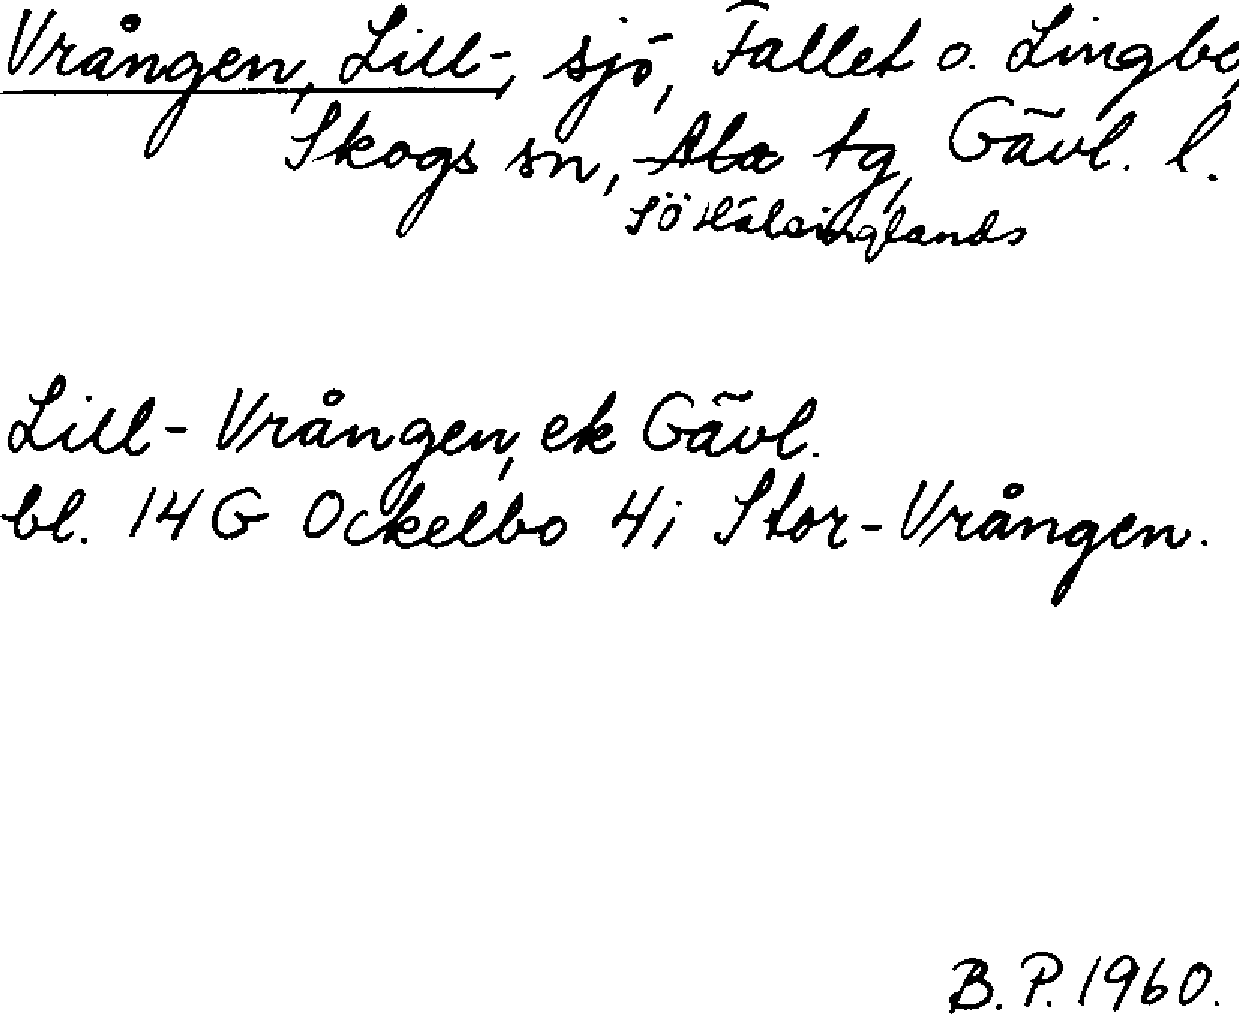 Vrången, Lill-, sjö, Fallet o. Lingbo,
Skogs sn, Ala tg, Gävl. l.
Sö Hälsinglands
Lill-Vrången, ek Gävl.
bl. 14 G Ockelbo 4i Stor-Vrången.
B.P. 1960.